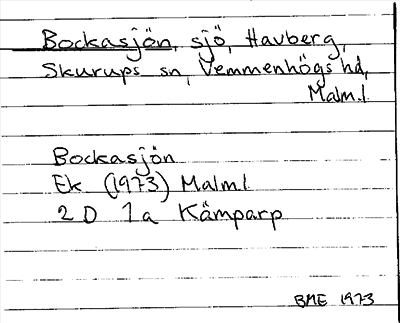 Bockasjön, sjö, Havberg,
Skurups sn, Vemmenhögs hd,
Malm.l.
Bockasjön
Ek (1973) Malm.l.
2 D 7a Kämparp
BME 1973